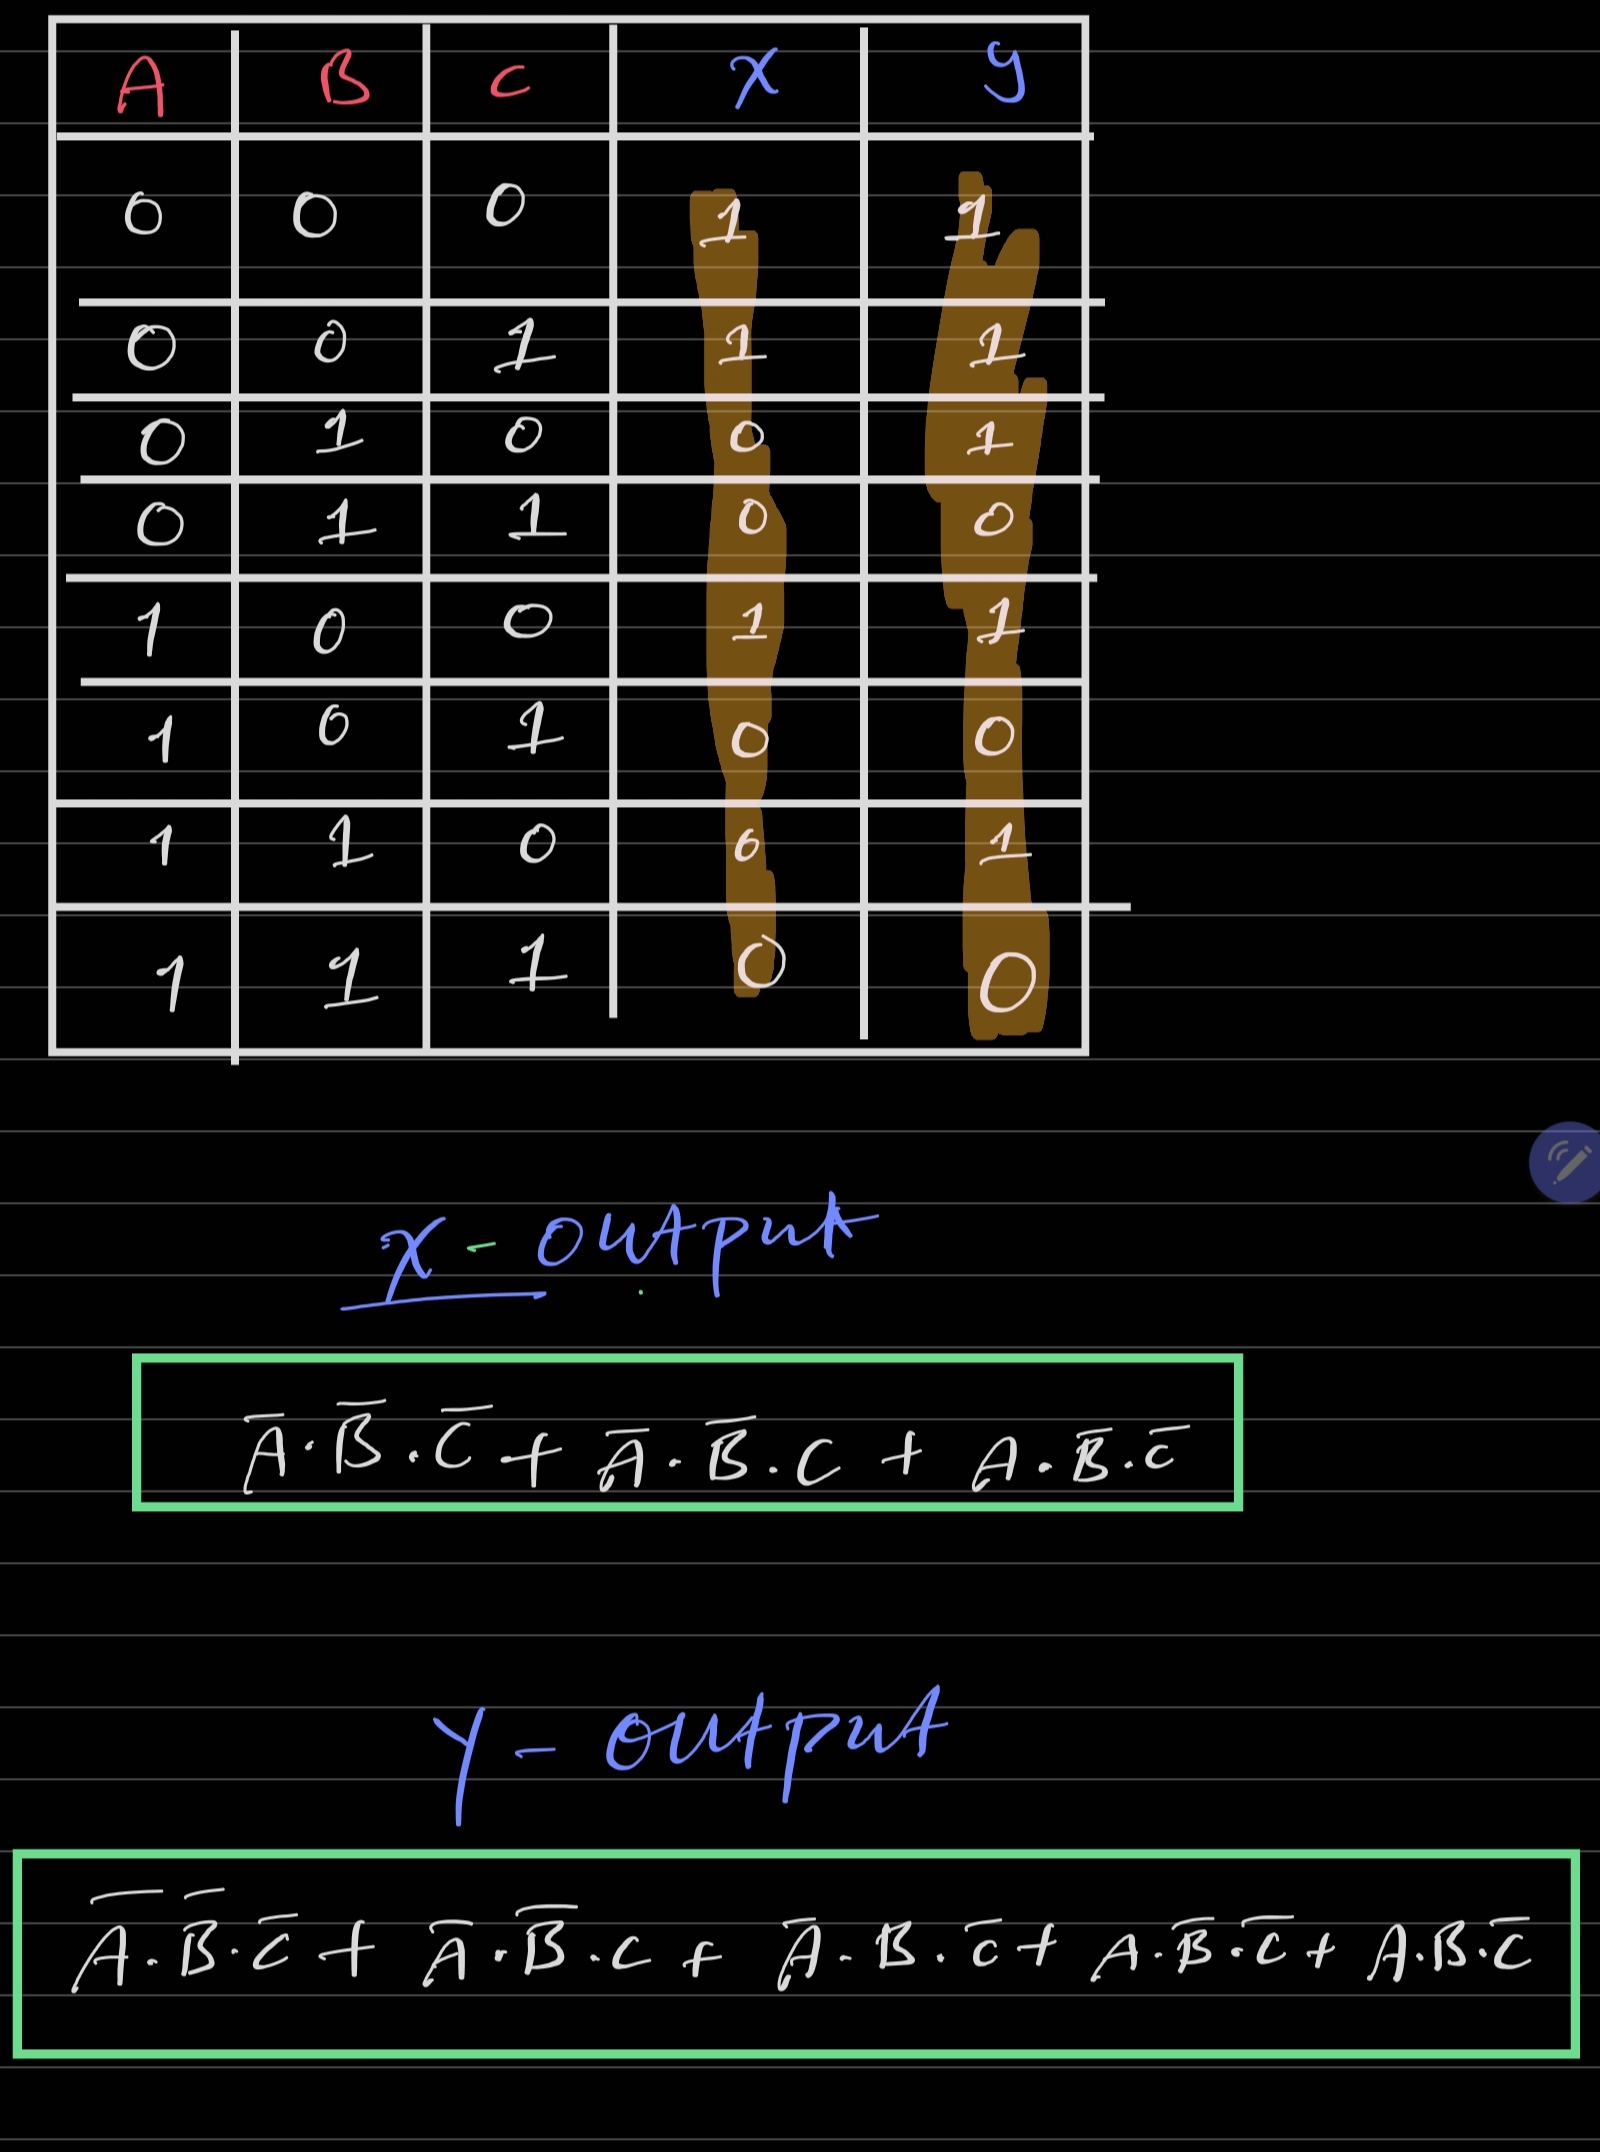 A B C x y
0 0 0 1 1
0 0 1 1 1
0 1 0 0 1
0 1 1 0 0
1 0 0 1 1
1 0 1 0 0
1 1 0 0 1
1 1 1 0 0
x - output
A̅·B̅·C̅ + A̅·B̅·C + A·B̅·C̅
Y - output
A̅·B̅·C̅ + A̅·B̅·C + A̅·B·C̅ + A·B̅·C̅ + A·B·C̅